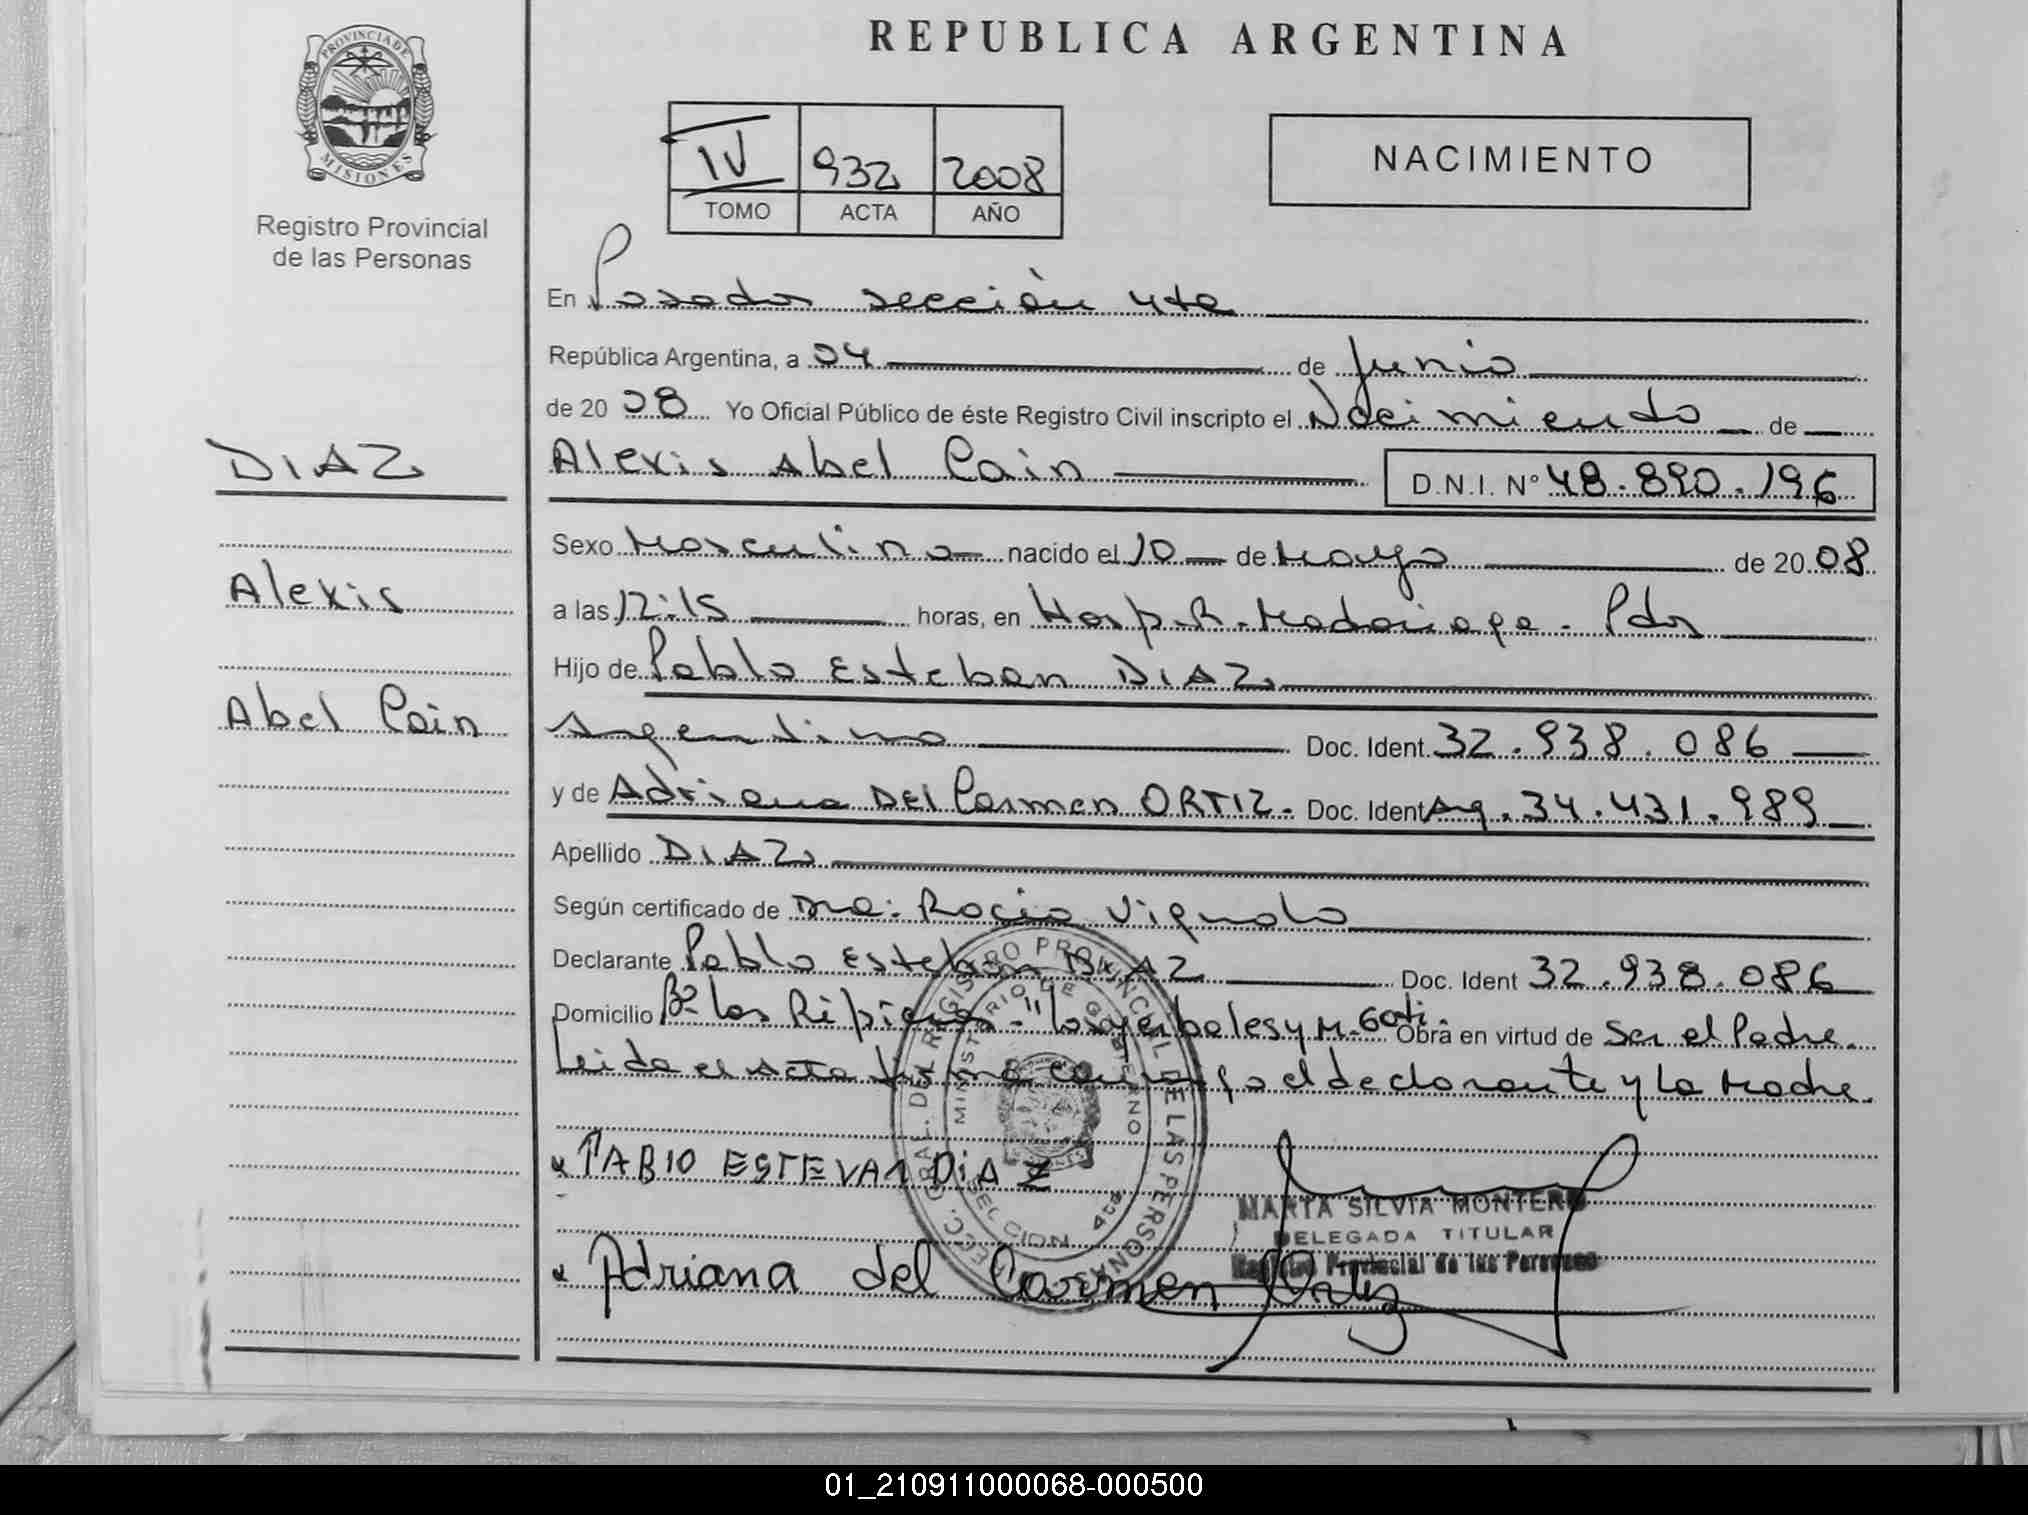 REPUBLICA ARGENTINA
PROVINCIA DE
MISIONES
Registro Provincial
de las Personas
IV 932 2008
TOMO ACTA AÑO
NACIMIENTO
En Posadas sección 4ta
República Argentina, a 04 de Junio
de 2008 Yo Oficial Público de éste Registro Civil inscripto el Nacimiento de
DIAZ
Alexis Abel Cain D.N.I. Nº 48.890.196
Sexo Masculino nacido el 10 de Mayo de 2008
Alexis
a las 12:15 horas, en Hosp. R. Madariaga - Pdas
Hijo de Pablo Esteban DIAZ
Abel Cain
Argentino Doc. Ident. 32.938.086
y de Adriana DEL Carmen ORTIZ - Doc. Ident Ag. 34.431.989
Apellido DIAZ
Según certificado de Dra: Rocio Vignolo
Declarante Pablo Esteban DIAZ Doc. Ident 32.938.086
Domicilio Bº Los y M. Obra en virtud de Ser el Padre.
Leida el Acta firma conmigo el declarante y La Madre.
x PABlO ESTEVAN DiAZ
x Adriana del Carmen Ortiz
MARTA SILVIA MONTERO
DELEGADA TITULAR
Registro Provincial de las Personas
DIRECC. GRAL. DEL REGISTRO PROVINCIAL DE LAS PERSONAS
MINISTERIO DE GOBIERNO
SECCION 4ta
01_210911000068-000500